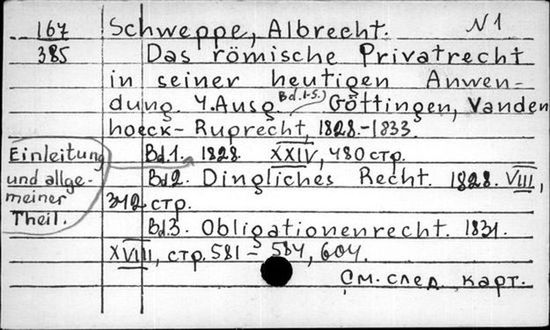 167 Schweppe, Albrecht. N 1
385 Das römische Privatrecht
in seiner heutigen Anwen-
dung. 4. Ausg. Bd. 1-5.) Göttingen, Vanden
hoeck- Ruprecht, 1828.-1833.
Einleitung und allge- meiner Theil.
Bd.1. 1828. XXIV, 480 стр.
Bd2. Dingliches Recht. 1828. VIII,
342 стр.
Bd.3. Obligationenrecht. 1831.
XVIII, стр. 581 - 584, 604.
См. след. карт.